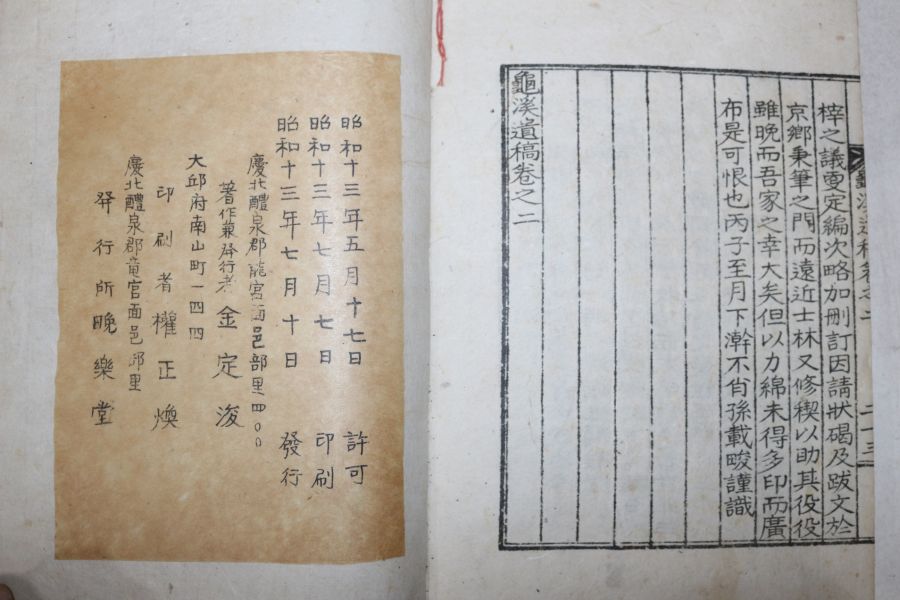 梓之議更定編次略加刪訂因請狀碣及跋文於
京鄉秉筆之門而遠近士林又修稧以助其役役
雖晚而吾家之幸大矣但以力綿未得多印而廣
布是可恨也丙子至月下澣不肖孫載畯謹識
龜溪遺稿卷之二
龜溪遺稿卷之二 二十三
昭和十三年五月十七日 許可
昭和十三年七月七日 印刷
昭和十三年七月十日 發行
慶北醴泉郡龍宮面邑部里四〇〇
著作兼発行者 金定浚
大邱府南山町一四四
印刷者 權正煥
慶北醴泉郡竜宮面邑部里
発行所 晩樂堂